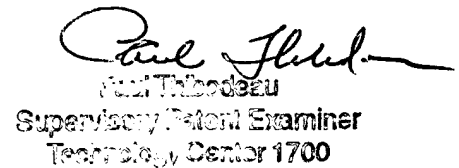 Paul Thibodeau
Paul Thibodeau
Supervisory Patent Examiner
Technology Center 1700